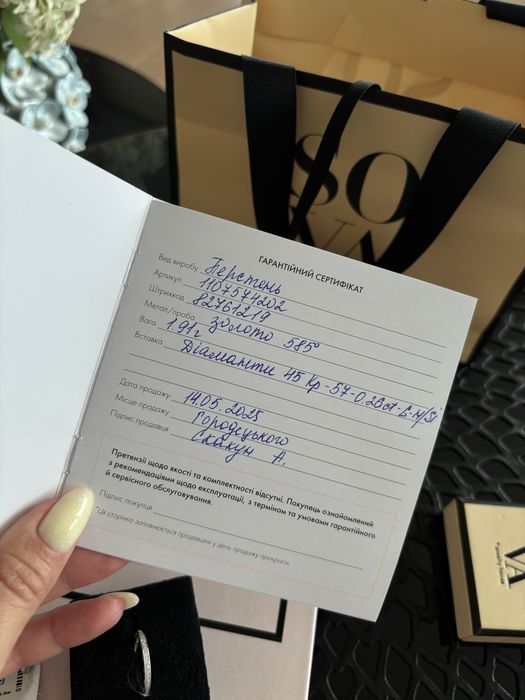 SO
VA
ГАРАНТІЙНИЙ СЕРТИФІКАТ
Вид виробу Перстень
Артикул 1107574202
Штрихкод 82761219
Метал/проба золото 585°
Вага 1.91г
Вставка Діаманти 45 Кр-57-0.23ct-
Дата продажу 14.05.2025
Місце продажу Городецького
Підпис продавця Скакун А.
Претензії щодо якості та комплектності відсутні. Покупець ознайомлений
з рекомендаціями щодо експлуатації, з терміном та умовами гарантійного
й сервісного обслуговування.
Підпис покупця
*Ця сторінка заповнюється продавцем у день продажу прикраси
VA